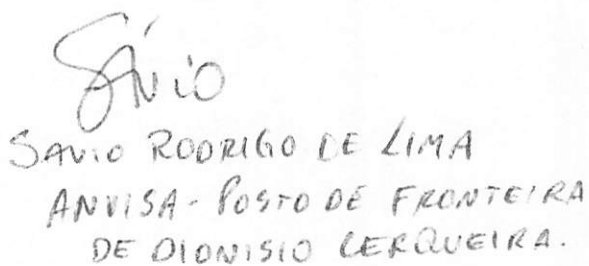 Sávio
SAVIO RODRIGO DE LIMA
ANVISA - POSTO DE FRONTEIRA
DE DIONISIO CERQUEIRA.